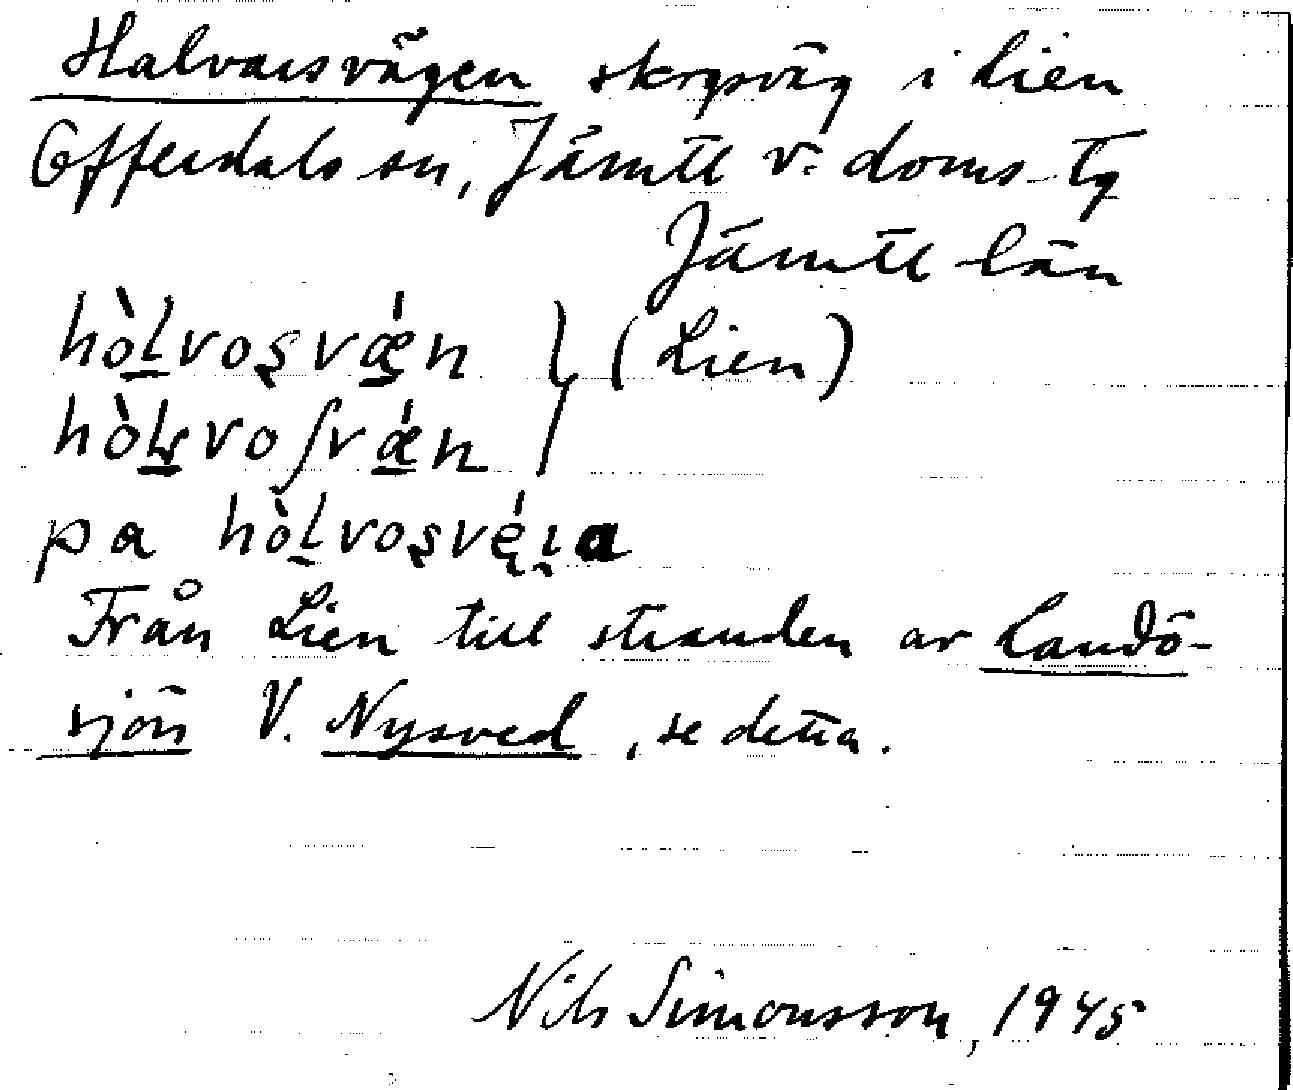 Halvarsvägen skogsväg i Lien
Offerdals sn, Jämtl v. doms. tg
Jämtl län
hòlvoşvǽn } (Lien)
hòlvoʃvǽn
pa hòlvoşvę́ɩa
Från Lien till stranden av Landö-
sjön V. Nysved, se detta.
Nils Simonsson, 1945